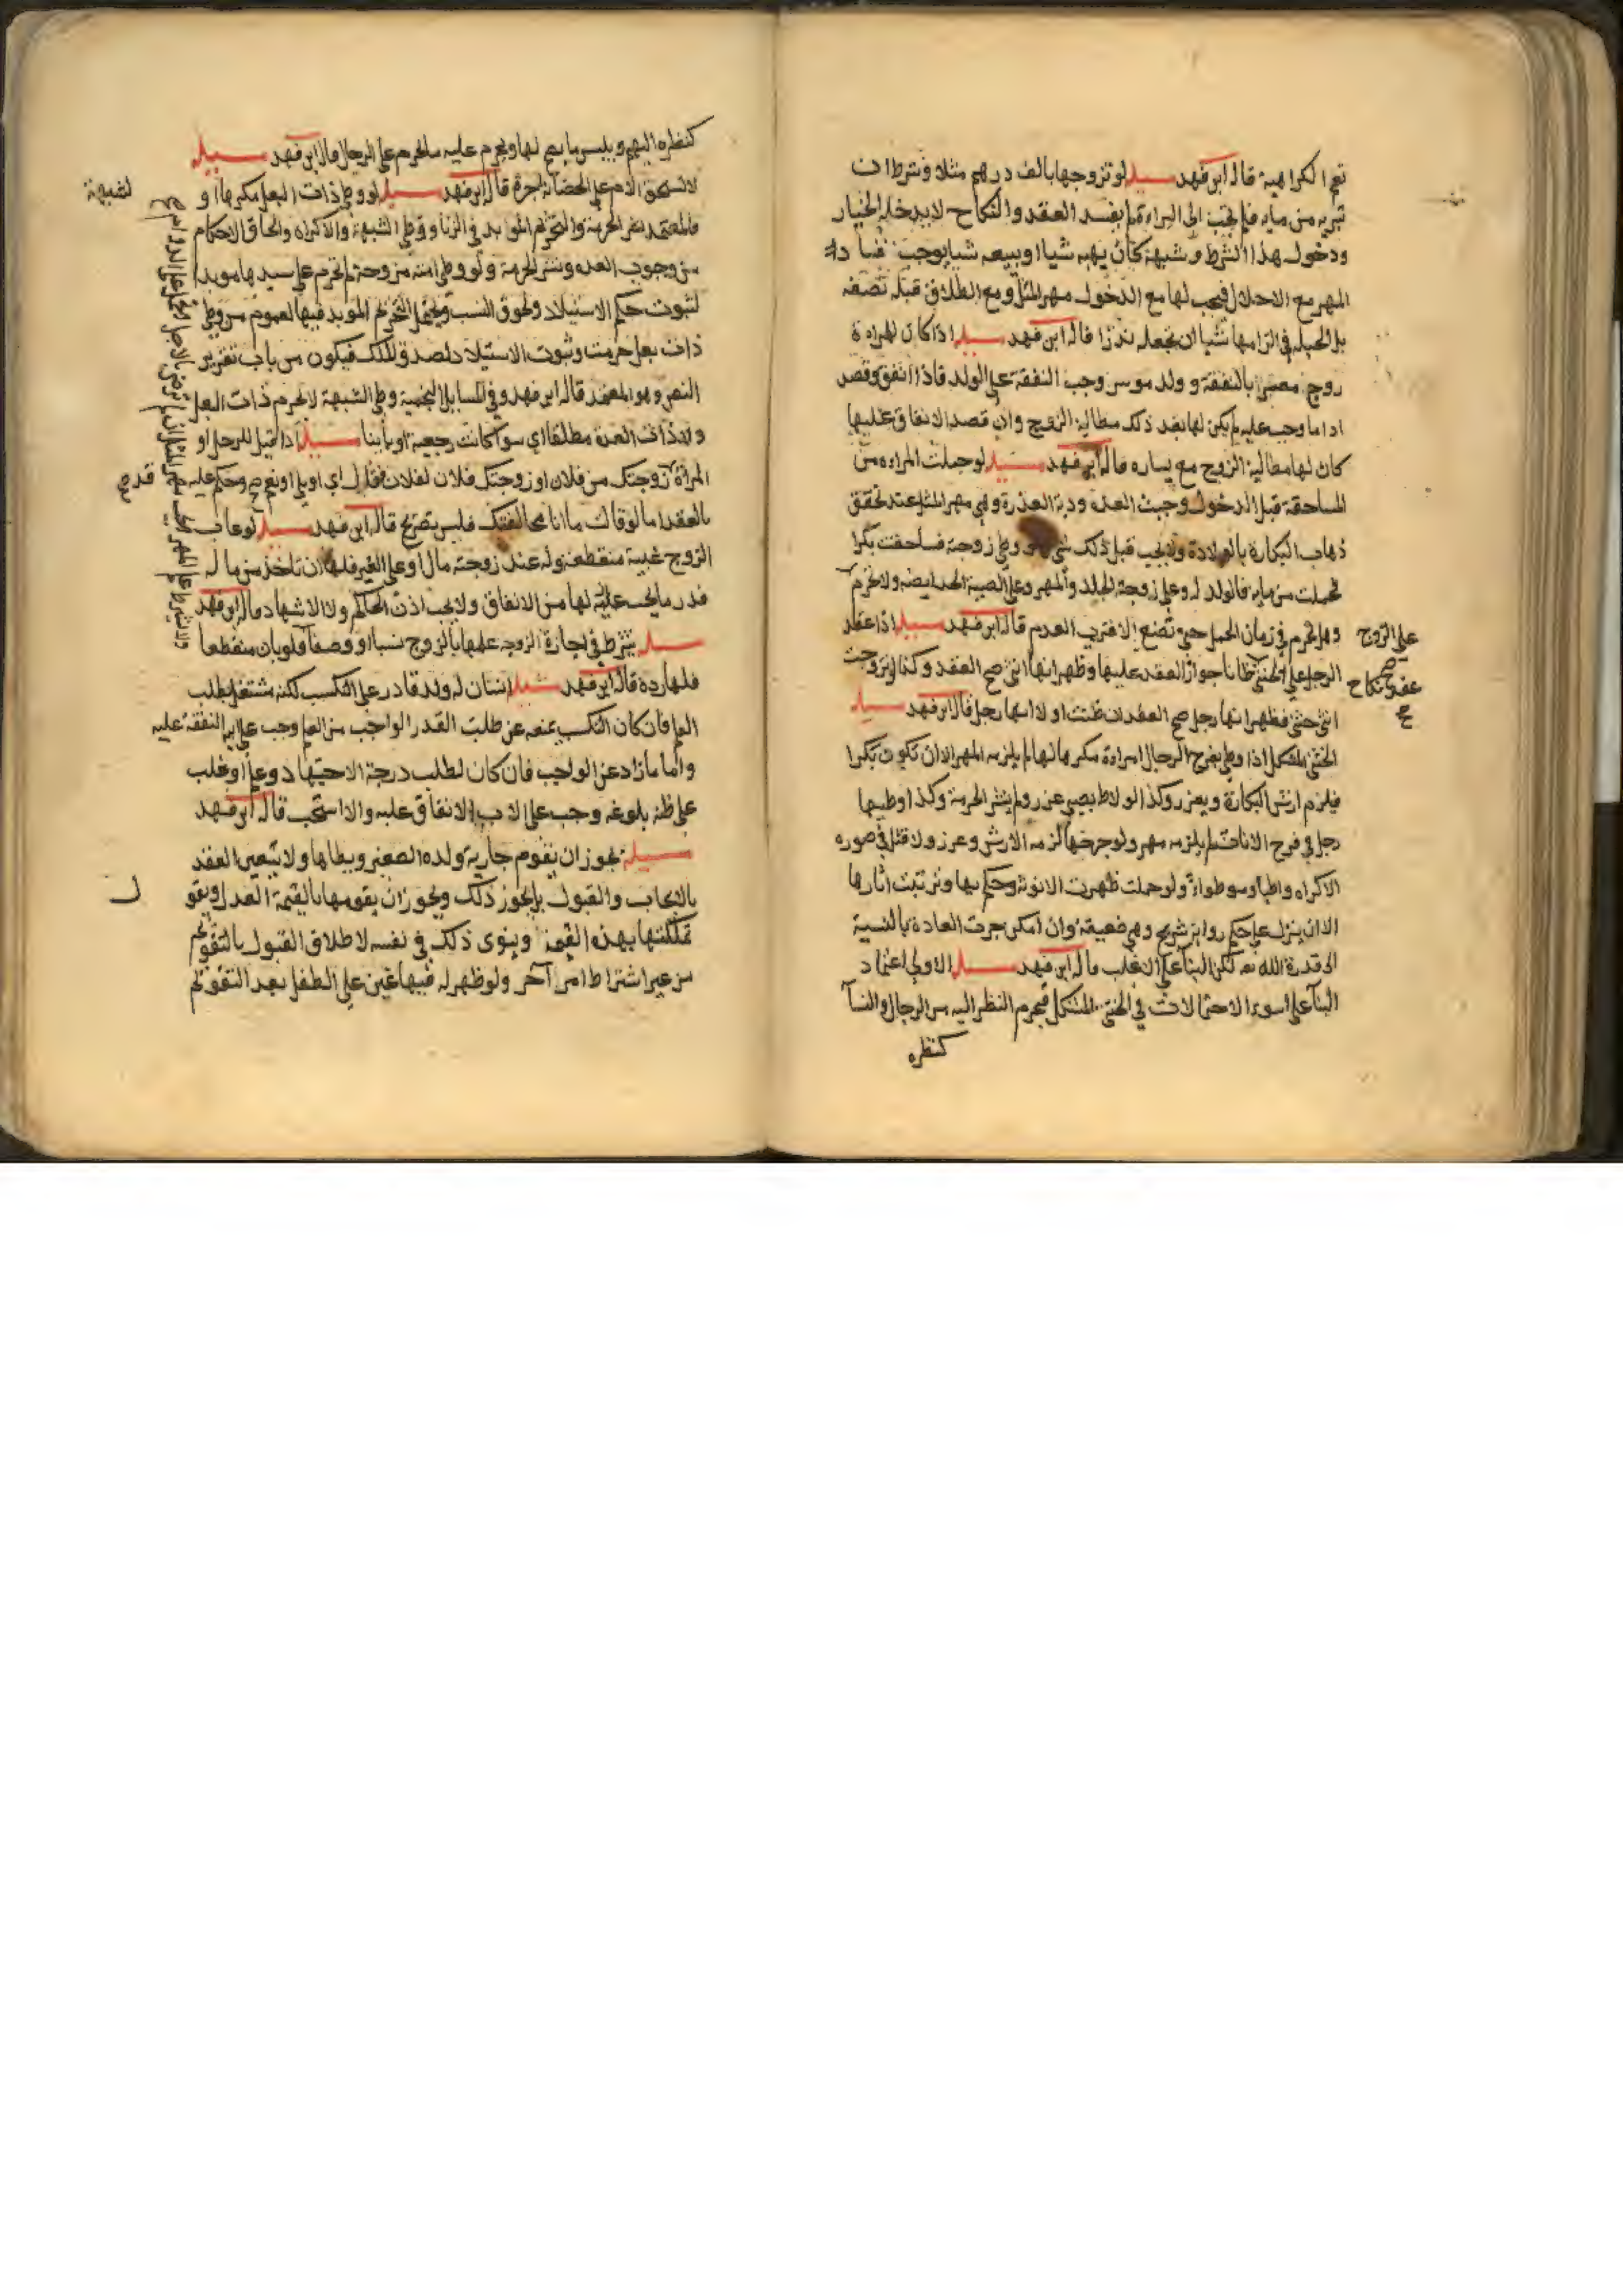 نعم الكراهية قال ابن فهد مسيلة لو تزوجها بالف درهم مثلا وشرط ان
تبريه من مايه فلم تجب الى البراءة لم يفسد العقد والنكاح لا يدخله الخيار
ودخول هذا الشرط وشبهه كان يهبه شيا او بيعه شيا يوجب فساد
المهر مع الاخلال فيجب لها مع الدخول مهر المثل ومع الطلاق قبله نصفه
بل الحيلة في الزامها شيا ان تجعله نذرا قال ابن فهد مسيلة اذا كان لامراة
زوج معسر بالنفقة وولد موسر وجب النفقة على الولد فاذا انفق وقصد
اداء ما وجب عليه لم يكن لها بعد ذلك مطالبة الزوج وان قصد الانفاق عليها
كان لها مطالبة الزوج مع يساره قال ابن فهد مسيلة لو حملت المراه من
المساحقة قبل الدخول وجبت العده ودية العذرة وهي مهر المثل عند تحقق
ذهاب البكارة بالولادة ولا يجب قبل ذلك شي ولو وطى زوجته فساحقت بكرا
فحملت من مايه فالولد له وعلى زوجته الجلد والمهر وعلى الصبية الحد ايضه ولا تحرم
على الزوج وهل تحرم في زمان الحمل حتى تضع الاقرب العدم قال ابن فهد مسيلة اذا عقد
الرجل على الخنثى ظانا جواز العقد عليها وظهر انها انثى صح العقد وكذا لو تزوجت
عقد نكاح صح
انثى خنثى فظهر انها رجل صح العقد ان ظنت اولا انها رجل قال ابن فهد مسيلة
الخنثى المشكل اذا وطى بفرج الرجال امراءة مكرها لها لم يلزمه المهر الا ان تكون بكرا
فيلزم ارش البكارة ويعزر وكذا لو لاط بصبي عزر ولم ينشر الحرمة وكذا لو وطيها
رجل في فرج الاناث لم يلزمه مهر ولو جرحها لزمه الارش وعزر ولا قتل في صوره
الاكراه واطيا وموطوا ولو حملت ظهرت الانوثة وحكم بها وترتبت اثارها
الا ان ينزل على حكم رواية شريح وهي ضعيفة وان امكن جرت العادة بالنسبة
الى قدرة الله تعـ لكن البنآ على الاغلب قال ابن فهد مسيلة الاولى اعتماد
البنآ على اسوء الاحتمالات في الخنثى المشكل فيحرم النظر اليه من الرجال والنسآ
كنظره
كنظره اليهم ويلبس ما يصح لها ويحرم عليه ما يحرم على الرجل قال ابن فهد مسيلة
لا تستحق الام على الحضانة اجرة قال ابن فهد مسيلة لو وطى ذات البعل مكرها او
لشبهة
فالمعتمد نفي الحرمة والتحريم المؤبد في الزنا ووطى الشبهة والاكراه والحاق الاحكام
من وجوب العده ونشر الحرمة ولو وطى امته مزوجة لم تحرم على سيدها مؤبدا
لثبوت حكم الاستيلاد ولحوق النسب ويحتمل التحريم المؤبد فيها لعموم من وطى
ذات بعل حرمت وثبوت الاستيلاد لصدق الملك فيكون من باب تقرير
النص وهو المعتمد قال ابن فهد وفي المسايل النجمية وطى الشبهة لا تحرم ذات البعل
ولا ذات العدة مطلقا اي سوآ كانت رجعية او باينا مسيلة اذا قيل للرجل او
المراة زوجتك من فلان او زوجتك فلان لفلان فقال اي او بلى او نعم صح وحكم عليه
بالعقد اما لو قالت ما انا مخالفتك فليس بصريح قال ابن فهد مسيلة لو غاب
الزوج غيبة منقطعة وله عند زوجته مال او على الغير فلها ان تاخذ من ماله
قدر ما يجب عليه لها من الانفاق ولا يجب اذن الحاكم ولا الاشهاد قال ابن فهد
مسيلة يشترط في اجازة الزوجة علمها بالزوج نسبا او وصفا فلو بان منقطعا
فلها رده قال ابن فهد مسيلة انسان له ولد قادر على التكسب لكنه يشتغل بطلب
العلم فان كان التكسب يمنعه عن طلب القدر الواجب من العلم وجب على ابيه النفقة عليه
واما ما زاد عن الواجب فان كان لطلب درجة الاجتهاد وعلم او غلب
على ظنه بلوغه وجب على الاب الانفاق عليه والا استحب قال ابن فهد
مسيلة يجوز ان يقوم جارية ولده الصغير ويطاها ولا يتعين العقد
بالايجاب والقبول بل يجوز ذلك ويجوز ان يقومها بالقيمة العدل ويقول
تملكتها بهذه القيمة وينوى ذلك في نفسه لاطلاق القبول بالتقويم
من غير اشتراط امر آخر ولو ظهر له فيها غبن على الطفل بعد التقويم